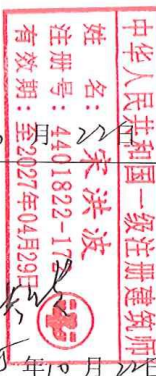 中华人民共和国一级注册建筑师
姓 名：宋洪波
注册号：4401822-17
有效期：至2027年04月29日
月 22日
年10月22日